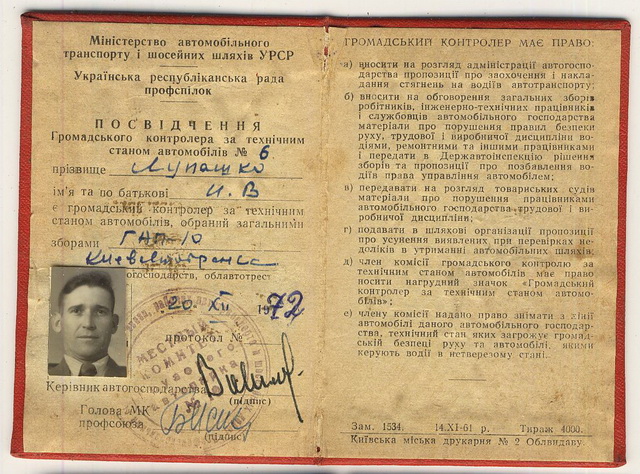 Міністерство автомобільного
транспорту і шосейних шляхів УРСР
Українська республіканська рада
профспілок
ПОСВІДЧЕННЯ
Громадського контролера за технічним
станом автомобілів № 6
прізвище Лупашко
ім'я та по батькові И. В
є громадський контролер за технічним
станом автомобілів, обраний загальними
зборами
господарств, облавтотрест
20 XII 1972
протокол №
Керівник автогосподарства
(підпис)
Голова МК
профсоюза
(підпис)
МЕСТНЫЙ
КОМИТЕТ
ГРОМАДСЬКИЙ КОНТРОЛЕР МАЄ ПРАВО:
а) вносити на розгляд адміністрації автогоспо-
дарства пропозиції про заохочення і накла-
дання стягнень на водіїв автотранспорту;
б) вносити на обговорення загальних зборів
робітників, інженерно-технічних працівників
і службовців автомобільного господарства
матеріали про порушення правил безпеки
руху, трудової і виробничої дисципліни во-
діями, ремонтними та іншими працівниками
і передати в Державтоінспекцію рішення
зборів та пропозиції про позбавлення во-
дії права управління автомобілем;
в) передавати на розгляд товариських судів
матеріали про порушення працівниками
автомобільного господарства трудової і ви-
робничої дисципліни;
г) подавати в шляхові організації пропозиції
про усунення виявлених при перевірках не-
доліків в утриманні автомобільних шляхів;
д) член комісії громадського контролю за
технічним станом автомобілів має право
носити нагрудний значок «Громадський
контролер за технічним станом автомо-
білів»;
е) члену комісії надано право знімати з лінії
автомобілі даного автомобільного господар-
ства, технічний стан яких загрожує громад-
ській безпеці руху та автомобілі, якими
керують водії в нетверезому стані.
Зам. 1534. 14.XI-61 р. Тираж 4000.
Київська міська друкарня № 2 Облвидаву.